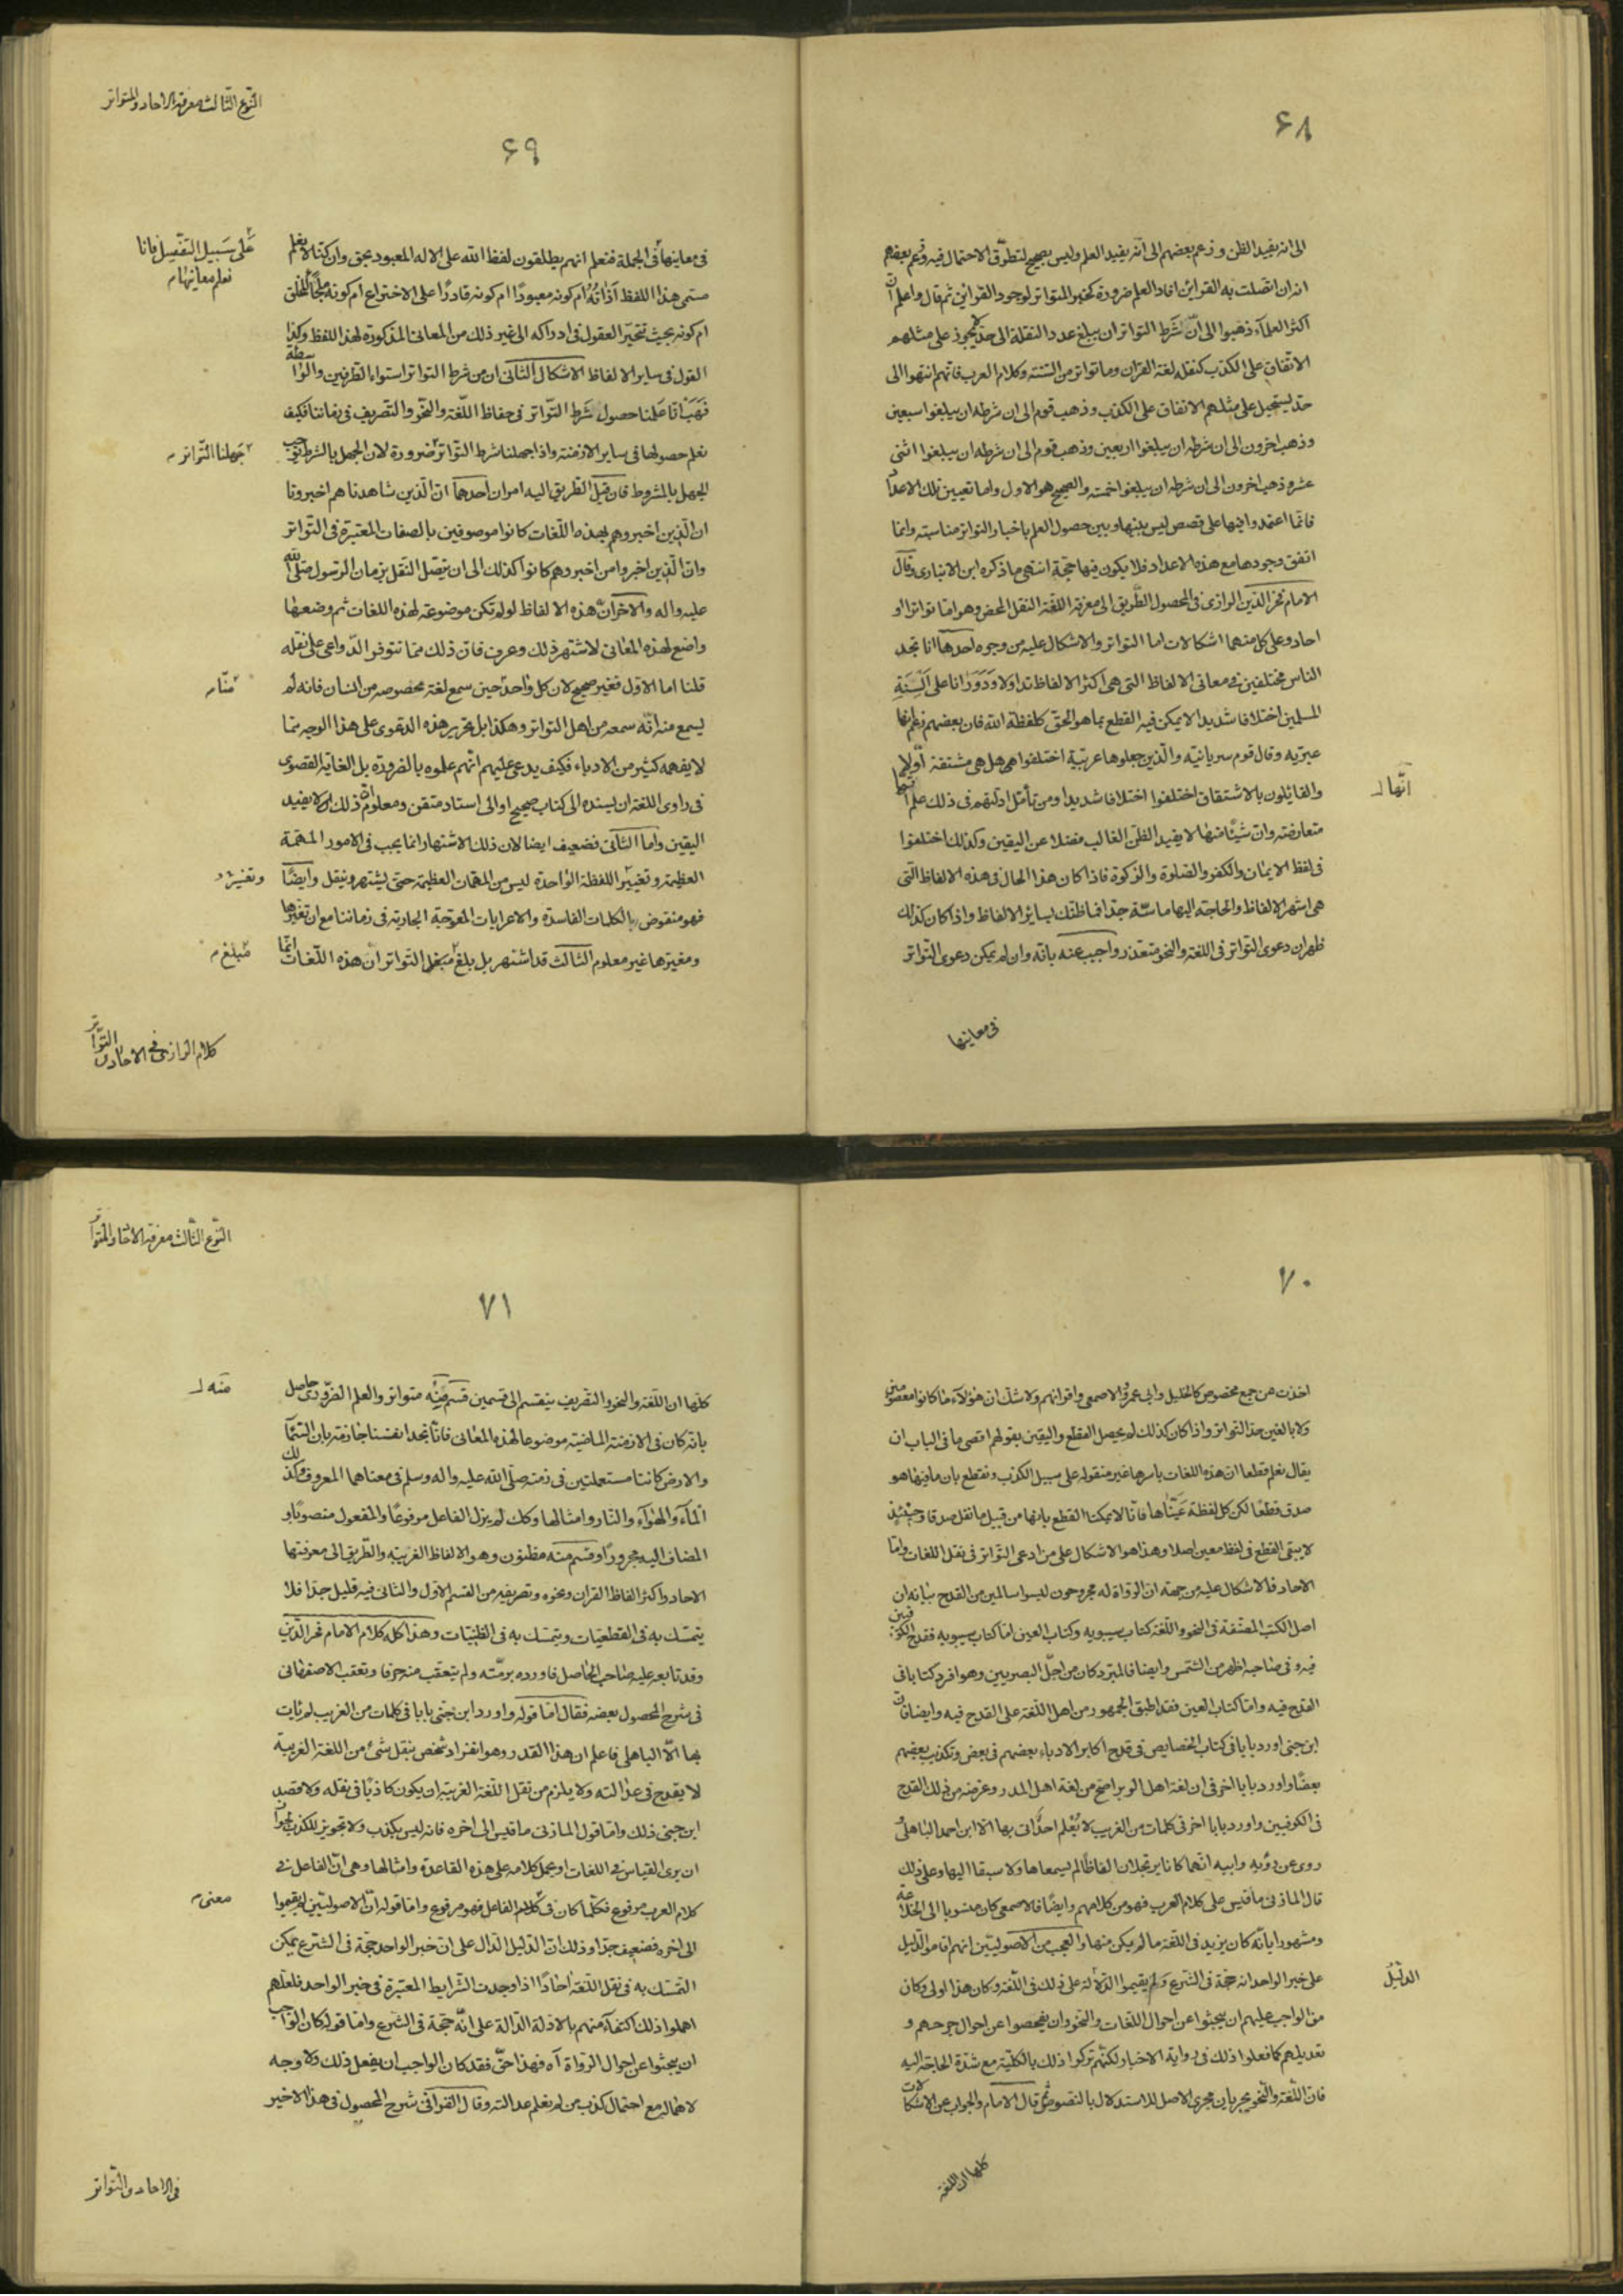 ۶۸
الى انه يفيد الظن وزعم بعضهم الى انه يفيد العلم وليس بصحيح لتطرق الاحتمال فيه وزعم بعضهم
انه ان اتصلت به القراين افاد العلم ضرورة كخبر المتواتر لوجود القراين ثم قال واعلم ان
اكثر العلمآء ذهبوا الى انّ شَرط التواتر ان يبلغ عدد النقلة الى حد لا يجوز على مثلهم
الاتفاق على الكذب كنقلة لغة القران وما تواتر من السّنة وكلام العرب فانهم انتهوا الى
حد يستحيل على مثلهم الاتفاق على الكذب وذهب قوم الى ان شرطه ان يبلغوا سبعين
وذهب اخرون الى ان شرطه ان يبلغوا اربعين وذهب قوم الى ان شرطه ان يبلغوا اثنى
عشر وذهب اخرون الى ان شرطه ان يبلغوا خمسة والصحيح هو الاول واما تعيين تلك الاعداد
فانما اعتمدوا فيها على قصص ليس بينها وبين حصول العلم باخبار التواتر مناسبة وانما
اتفق وجودها مع هذه الاعداد فلا يكون فيها حجّة انتهى ما ذكره ابن الانبارى وقال
الامام فخر الدّين الرازى فى المحصول الطّريق الى معرفة اللّغة النقل المحض وهو اما تواتر او
احاد وعلى كل منهما اشكالات اما التواتر والاشكال عليه من وجوه احدها انا نجد
الناس مختلفين فى معانى الالفاظ التى هى اكثر الالفاظ تداولا ودَوَرَانا على اَلْسِنَةِ
المسلمين اختلافا شديدا لا يمكن فيه القطع بما هو الحق كلفظة الله فان بعضهم زعم انها
عبرية وقال قوم سريانيّة والّذين جعلوها عربيّة اختلفوا هى هل هى مشتقة اَوْ لا
والقايلون بالاشتقاق اختلفوا اختلافا شديدا ومن تأمّل ادلتهم فى ذلك علم انها
متعارضة وان شيئا منها لا يفيد الظن الغالب فضلا عن اليقين وكذلك اختلفوا
فى لفظ الايمان والكفر والصّلوة والزكوة فاذا كان هذا الحال فى هذه الالفاظ التى
هى اشهر الالفاظ والحاجة اليها ماسّة جدّا فما ظنّك بساير الالفاظ واذا كان كذلك
ظهر ان دعوى التواتر فى اللغة والنحو متعذر واجيب عنه بانه وان لم يمكن دعوى التواتر
انّها
فى معانيها
النّوع الثالث معرفة الاحاد والمتواتر
۶۹
فى معانيها فى الجملة فنعلم انهم يطلقون لفظ الله على الاله المعبود بحق وان كنّا لا نعلم
مسمى هذا اللفظ اَذَاتُهُ ام كونه معبودًا ام كونه قادرًا على الاختراع ام كونه ملجأ للخلق
ام كونه بحيث تتحيّر العقول فى ادراكه الى غير ذلك من المعانى المذكورة لهذا اللفظ وكذا
القول فى ساير الالفاظ الاشكال الثّانى ان من شرط التواتر استواء الطّرفين والواسطة
فَهَبْ انّا علمنا حصول شرط التّواتر فى حفاظ اللّغة والنّحو والتصريف فى زماننا فكيف
نعلم حصولها فى ساير الازمنة واذا جهلنا شرط التواتر ضرورة لان الجهل بالشرط يوجب
الجهل بالمشروط فان قيل الطّريق اليه امران احدهما انّ الّذين شاهدناهم اخبرونا
ان الّذين اخبروهم بهذه اللّغات كانوا موصوفين بالصفات المعتبرة فى التّواتر
وان الّذين اخبروا من اخبروهم كانوا كذلك الى ان يتصل النقل بزمان الرسول صلّى الله
عليه واله والاخر انّ هذه الالفاظ لو لم تكن موضوعة لهذه اللغات ثم وضعها
واضع لهذه المعانى لاشتهر ذلك وعرف فان ذلك ممّا تتوفر الدّواعى على نقله
قلنا اما الاول فغير صحيح لان كل واحد حين سمع لغة مخصوصه من انسان فانه لم
يسمع منه انّه سمعه من اهل التواتر وهكذا بل تحرير هذه الدعوى على هذا الوجه مما
لا يفهمه كثير من الادباء فكيف يدعى عليهم انّهم علموه بالضرورة بل الغاية القصوى
فى راوى اللّغة ان يسنده الى كتاب صحيح او الى استاد متقن ومعلوم ان ذلك لا يفيد
اليقين واما الثانى فضعيف ايضا لان ذلك الاشتهار انما يجب فى الامور المهمّة
العظيمة وتغيير اللفظة الواحدة ليس من المهمّات العظيمة حتى يشتهر وينقل وايضًا
فهو منقوض بالكلمات الفاسدة والاعرابات المعوّجة الجارية فى زماننا مع ان تغيّرها
ومغيرها غير معلوم الثالث قد اشتهر بل بلغ مبلغ التواتر ان هذه اللّغات انّما
عَلَى سَبيل التفّصيل فانا
نعلم معانيها
جهلنا التّواتر
منّا
وتغيّر
مبلغ
كلام الرازى فى الاحاد والتّواتر
۷۰
اخذت عن جمع مخصوص كالخليل وابى عمرو والاصمعى واقرانهم ولا شك ان هؤلآء ما كانوا معصومين
ولا بالغين حدّ التواتر واذا كان كذلك لم يحصل القطع واليقين بقولهم اقصى ما فى الباب ان
يقال نعلم قطعا ان هذه اللغات باسرها غير منقولة على سبيل الكذب ونقطع بان ما فيها هو
صدق قطعا لكن كل لفظة عَيّنّاها فانّا لا يمكننا القطع بانها من قبيل ما نقل صدقا وحينئذ
لا يبقى القطع فى لفظ معين اصلا وهذا هو الاشكال على من ادعى التّواتر فى نقل اللغات وامّا
الاحاد فالاشكال عليه من جهة ان الرواة له مجروحون ليسوا سالمين من القدح بيانه ان
اصل الكتب المصنّفة فى النحو واللّغة كتاب سيبويه وكتاب العين امّا كتاب سيبويه فقدح الكوفيين
فيه وفى صاحبه اظهر من الشّمس وايضا فالمبرّد كان من اجلّ البصريين وهو افرد كتابا فى
القدح فيه وامّا كتاب العين فقد اطبق الجمهور من اهل اللّغة على القدح فيه وايضا فان
ابن جنى اورد بابا فى كتاب الخصايص فى قدح اكابر الادباء بعضهم فى بعض وتكذيب بعضهم
بعضًا واورد بابا اخر فى ان لغة اهل الوبر اصح من لغة اهل المدر وغرضه من ذلك القدح
فى الكوفيين واورد بابا اخر فى كلمات من الغريب لا يُعْلَم احدٌ اتى بها الا ابن احمر الباهلى
روى عن رؤبه وابيه انّهما كانا يرتجلان الفاظًا لم يسمعاها ولا سبقا اليها وعلى ذلك
قال المازنى ما قيس على كلام العرب فهو من كلامهم وايضًا فالاصمعى كان منسوبا الى الخلاعة
ومشهورا بانّه كان يزيد فى اللّغة ما لم يكن منها والعجب من الاصوليّين انهم اقاموا الدّليل
على خبر الواحد انه حجّة فى الشّرع ولم يقيموا الدّلالة على ذلك فى اللّغة وكان هذا اولى وكان
من الواجب عليهم ان يبحثوا عن احوال اللّغات والنّحو وان يفحصوا عن احوال جرحهم و
تعديلهم كما فعلوا ذلك فى رواية الاخبار لكنّهم تركوا ذلك بالكليّة مع شدّة الحاجة اليه
فان اللّغة والنّحو يجريان مجرى الاصل للاستدلال بالنصوص ثم قال الامام والجواب عن الاشكالات
الدّليل
كلها ان اللغة
النّوع الثّالث معرفة الاحاد والمتواتر
۷۱
كلّها ان اللّغة والنحو والتصريف ينقسم الى قسمين قسم مِنْه متواتر والعلم الضّرورى حاصل
بانّه كان فى الازمنة الماضية موضوعا لهذه المعانى فانا نجد انفسنا جازمة بان السّمآ
والارض كانتا مستعملتين فى زمنه صلّى الله عليه واله وسلم فى معناهما المعروف وكذلك
المآء والهوآء والنّار وامثالها وكك لم يزل الفاعل مرفوعًا والمفعول منصوبًا و
المضاف اليه مجرورًا وقسم منه مظنون وهو الالفاظ الغريبة والطّريق الى معرفتها
الاحاد واكثر الفاظ القران ونحوه وتصريفه من القسم الاوّل والثانى فيه قليل جدّا فلا
يتمسّك به فى القطعيّات ويتمسّك به فى الظنّيّات وهذا كلّه كلام الامام فخر الدّين
وقد تابعه عليه صاحب الحاصل فاورده برمّته ولم يتعقب منه حرفا وتعقب الاصفهانى
فى شرح المحصول بعضه فقال امّا قوله واورد ابن جنى بابا فى كلمات من الغريب لم يات
بها الّا الباهلى فاعلم ان هذا القدر وهو انفراد شخص بنقل شئ من اللغة الغريبة
لا يقدح فى عدالته ولا يلزم من نقل اللّغة الغريبة ان يكون كاذبًا فى نقله ولا قصد
ابن جنى ذلك وامّا قول المازنى ما قيس الى اخره فانه ليس بكذب ولا تجويز للكذب لجواز
ان يرى القياس فى اللغات او يحمل كلامه على هذه القاعدة وامثالها وهى انّ الفاعل فى
كلام العرب مرفوع فكلّما كان فى كلام الفاعل فهو مرفوع وامّا قوله انّ الاصوليّين لم يقيموا
الى اخره فضعيف جدّا وذلك انّ الدّليل الدّال على ان خبر الواحد حجّة فى الشّرع يمكن
التمسّك به فى نقل اللّغة احادًا اذا وجدت الشّرايط المعتبرة فى خبر الواحد فلعلّهم
اهملوا ذلك اكتفآء منهم بالادلة الدّالة على انّه حجّة فى الشّرع وامّا قوله كان الواجب
ان يبحثوا عن احوال الرّواة آه فهذا حقّ فقد كان الواجب ان يفعل ذلك ولا وجه
لاهماله مع احتمال كذب من لم يعلم عدالته وقال القرافى شرح المحصول فى هذا الاخير
منه
معنى
فى الاحاد والتّواتر